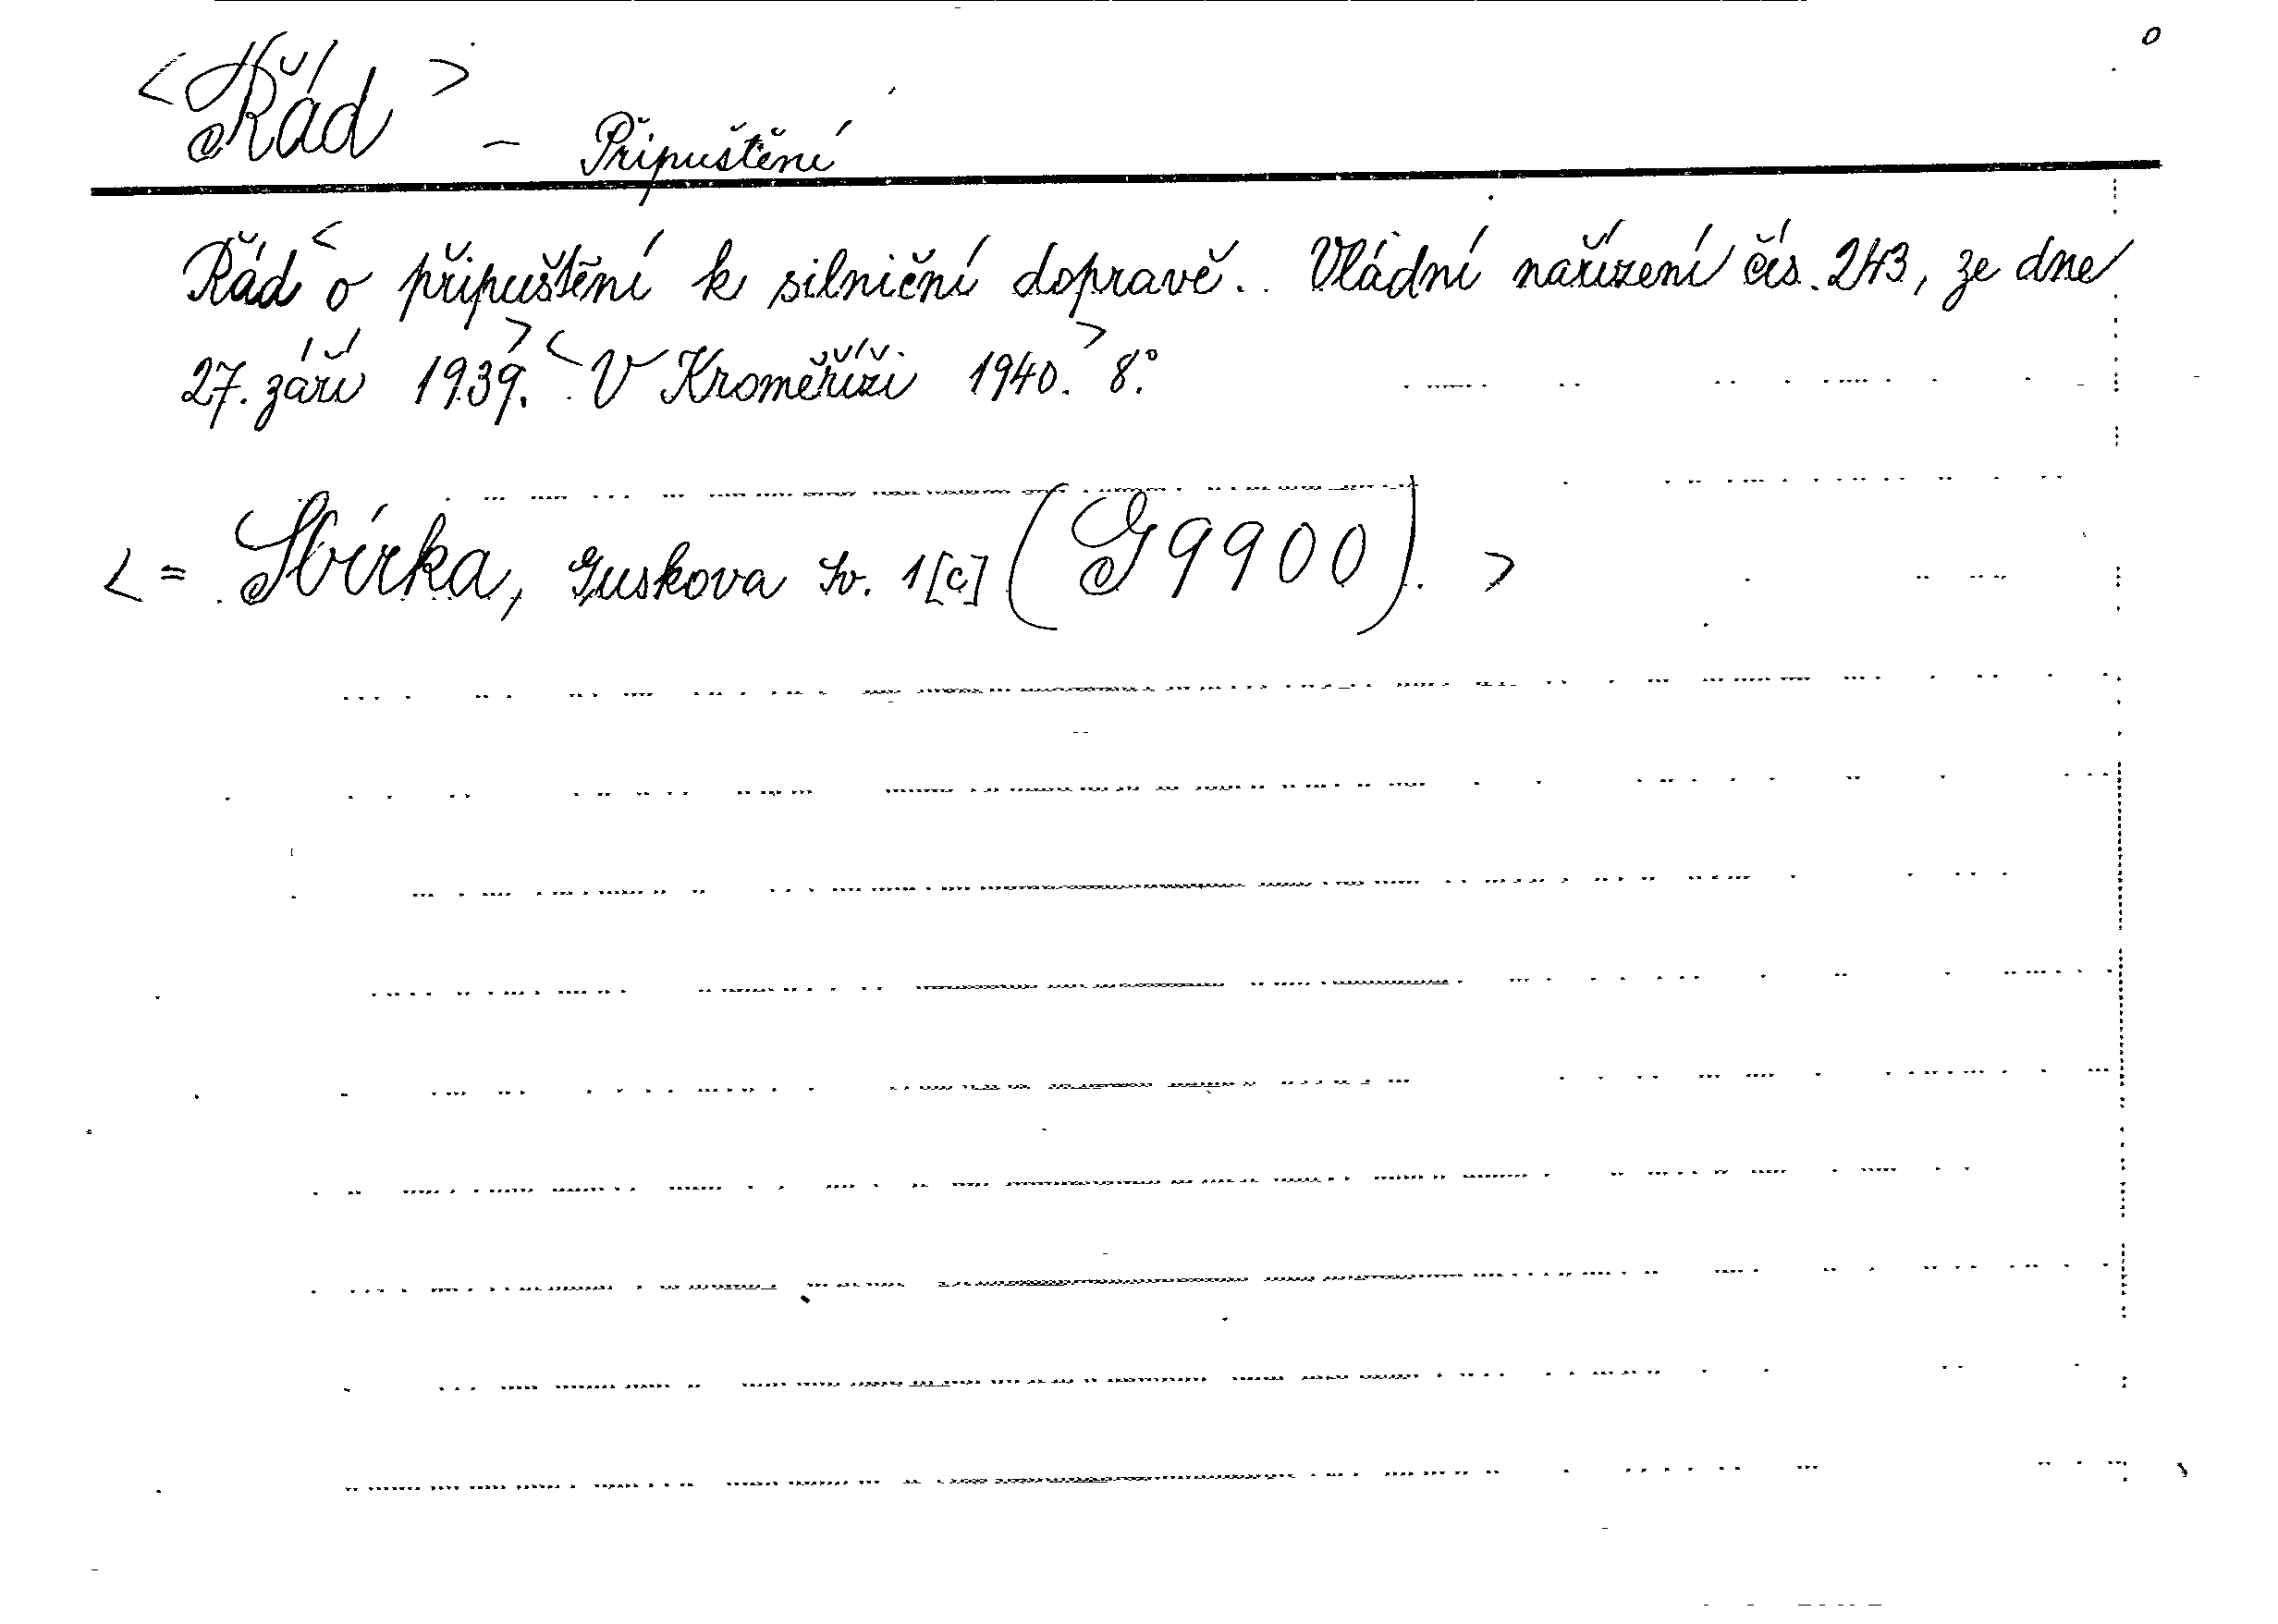 <Řád> - Připuštění
Řád <o připuštění k silniční dopravě.. Vládní nařízení čís. 243, ze dne
27. září 1939.> <V Kroměříži 1940.> 8.°
<= Sbírka, Guskova Sv. 1[c] (G 9900). >